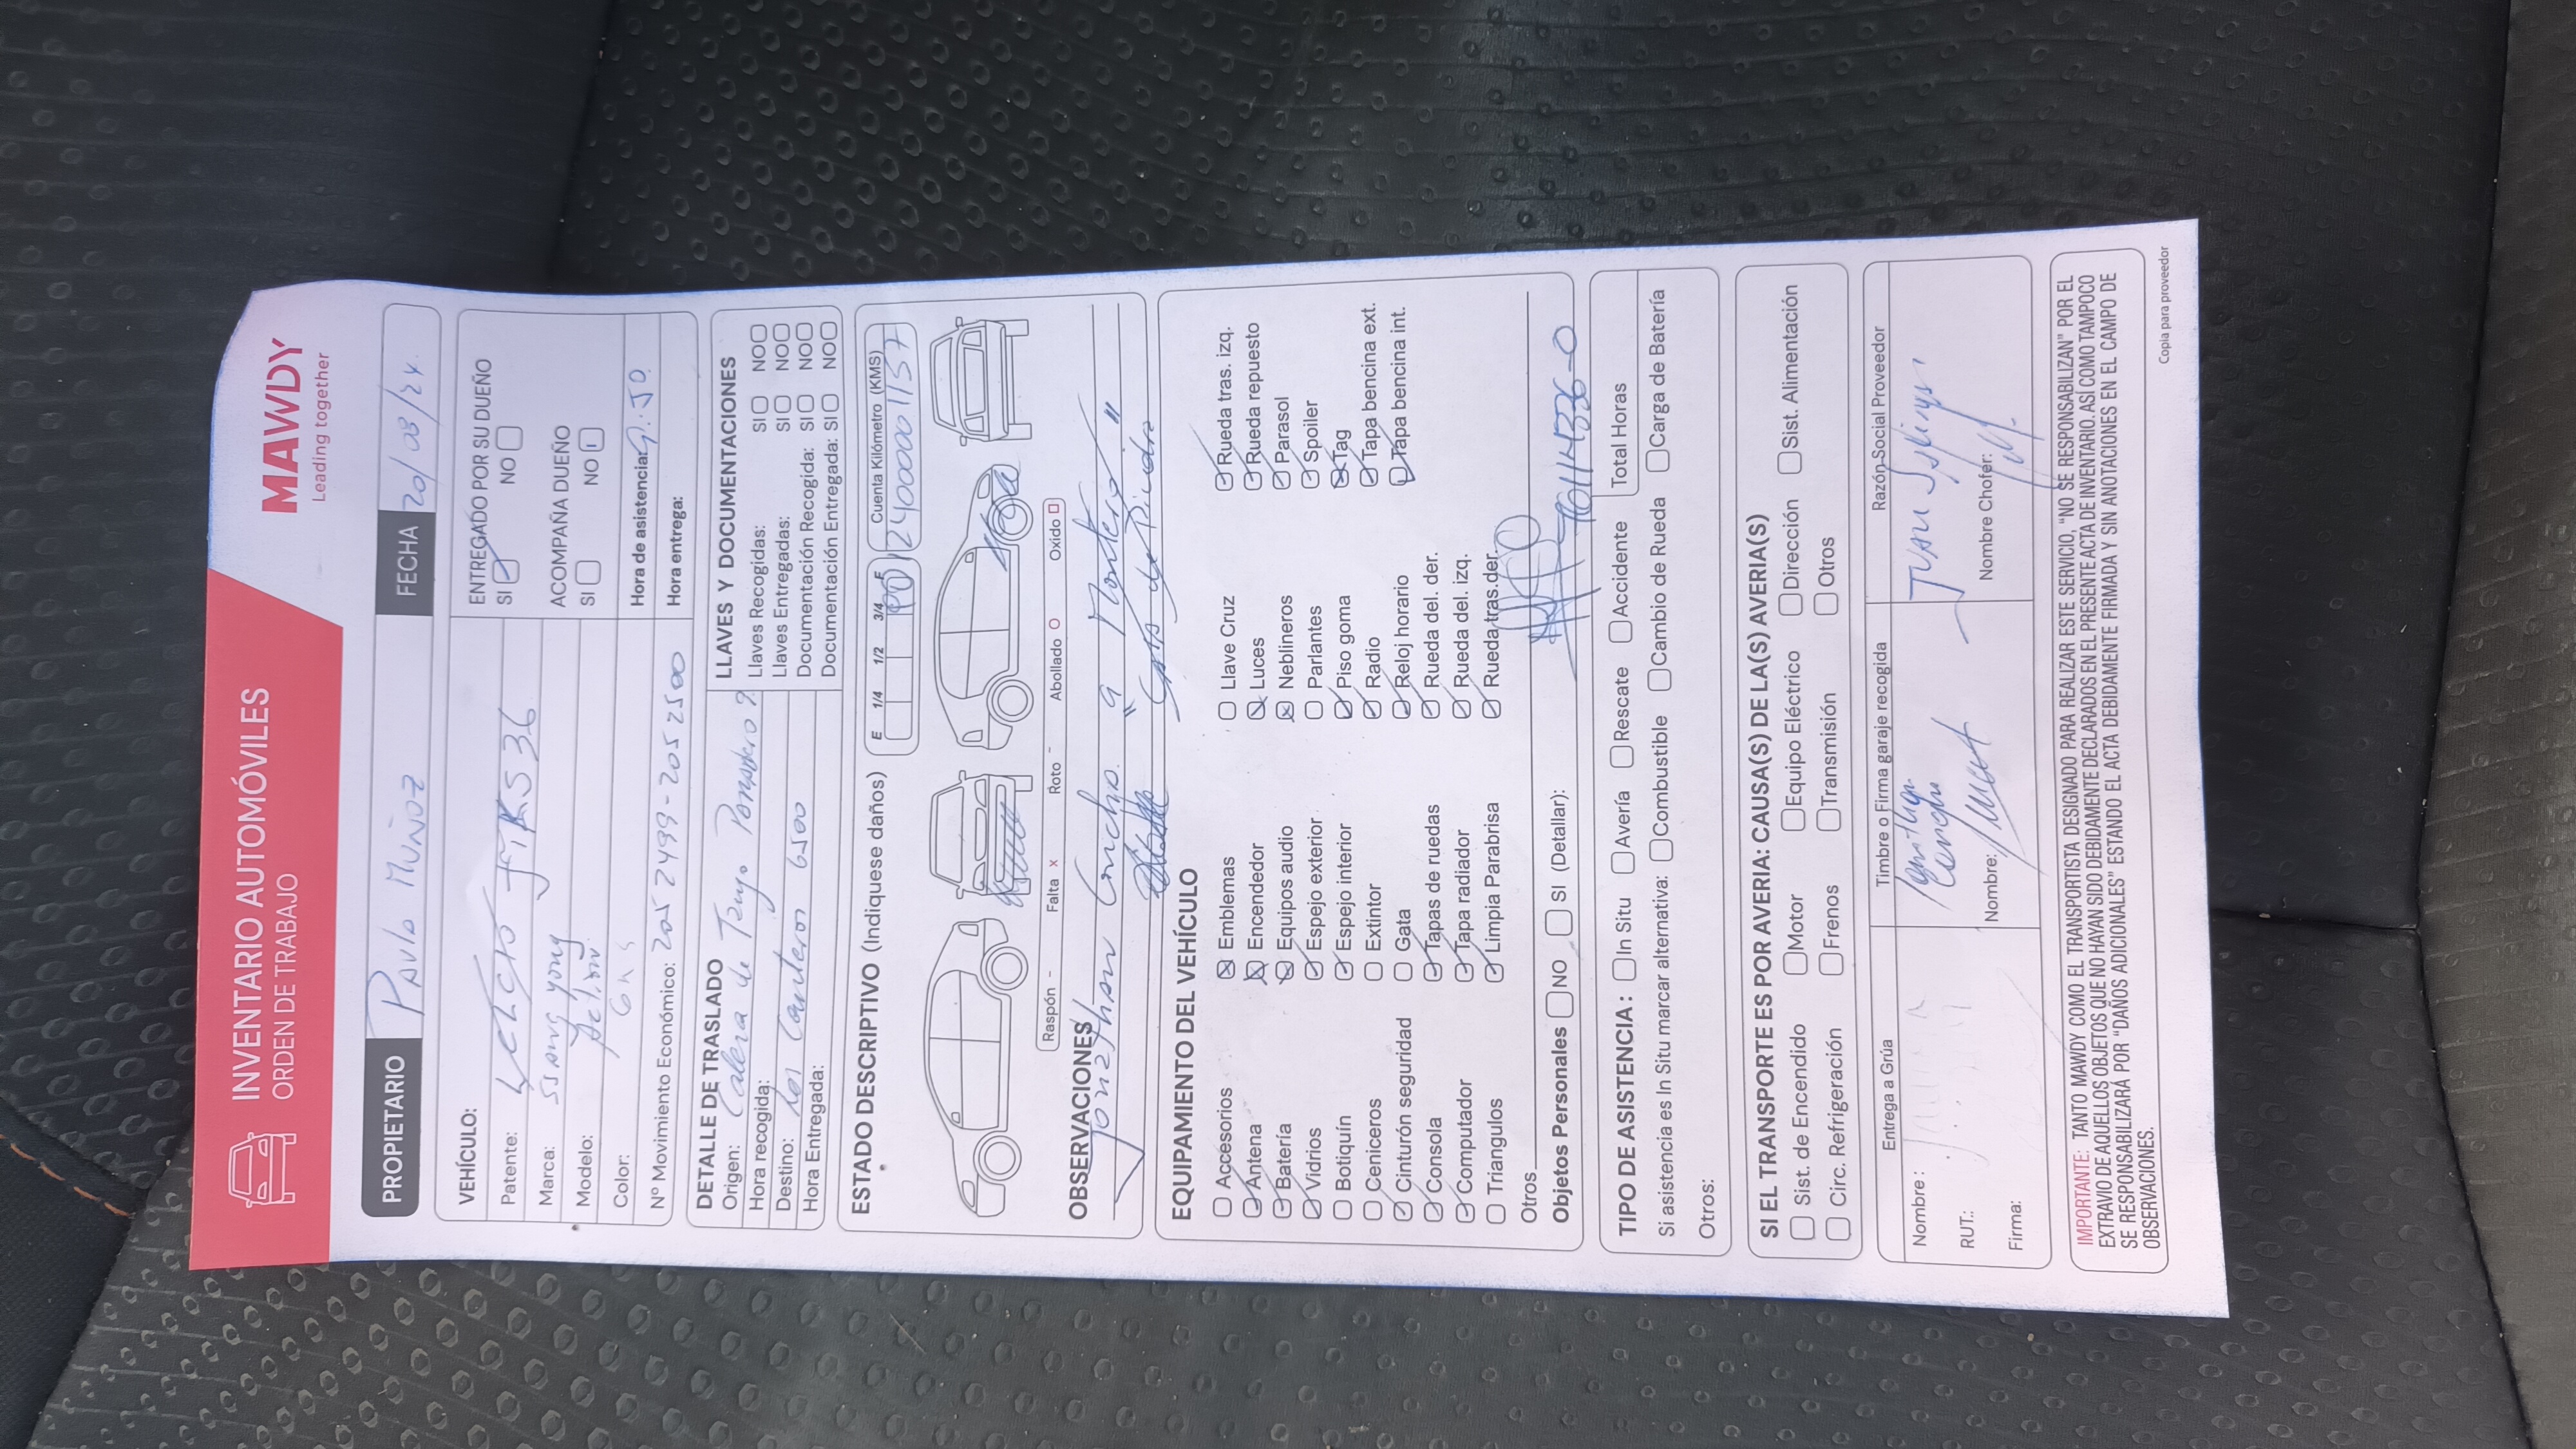 INVENTARIO AUTOMÓVILES
ORDEN DE TRABAJO
MAWDY
Leading together
PROPIETARIO
Paulo Muñoz
FECHA
20/08/24
VEHÍCULO:
Patente:
Marca: Ssang yong
Modelo: Action
Color: Gris
Nº Movimiento Económico: 2052499-2052500
ENTREGADO POR SU DUEÑO
SI NO
ACOMPAÑA DUEÑO
SI NO
Hora de asistencia:
Hora entrega:
DETALLE DE TRASLADO
Origen: Calera de Tango Paradero
Hora recogida:
Destino: Los Canteros 6500
Hora Entregada:
LLAVES Y DOCUMENTACIONES
Llaves Recogidas: SI NO
Llaves Entregadas: SI NO
Documentación Recogida: SI NO
Documentación Entregada: SI NO
ESTADO DESCRIPTIVO (Indiquese daños)
E 1/4 1/2 3/4 F
Cuenta Kilómetro (KMS)
Raspón - Falta x Roto - Abollado O Oxido
OBSERVACIONES
Jonathan Concha. "a Montero"
EQUIPAMIENTO DEL VEHÍCULO
Accesorios
Antena
Batería
Vidrios
Botiquín
Ceniceros
Cinturón seguridad
Consola
Computador
Triangulos
Emblemas
Encendedor
Equipos audio
Espejo exterior
Espejo interior
Extintor
Gata
Tapas de ruedas
Tapa radiador
Limpia Parabrisa
Llave Cruz
Luces
Neblineros
Parlantes
Piso goma
Radio
Reloj horario
Rueda del. der.
Rueda del. izq.
Rueda tras.der.
Rueda tras. izq.
Rueda repuesto
Parasol
Spoiler
Tag
Tapa bencina ext.
Tapa bencina int.
Otros
Objetos Personales NO SI (Detallar):
TIPO DE ASISTENCIA: In Situ Avería Rescate Accidente Total Horas
Si asistencia es In Situ marcar alternativa: Combustible Cambio de Rueda Carga de Batería
Otros:
SI EL TRANSPORTE ES POR AVERIA: CAUSA(S) DE LA(S) AVERIA(S)
Sist. de Encendido Motor Equipo Eléctrico Dirección Sist. Alimentación
Circ. Refrigeración Frenos Transmisión Otros
Entrega a Grúa
Nombre:
RUT.:
Firma:
Timbre o Firma garaje recogida
Nombre:
Razón Social Proveedor
Nombre Chofer:
IMPORTANTE: TANTO MAWDY COMO EL TRANSPORTISTA DESIGNADO PARA REALIZAR ESTE SERVICIO, "NO SE RESPONSABILIZAN" POR EL
EXTRAVIO DE AQUELLOS OBJETOS QUE NO HAYAN SIDO DEBIDAMENTE DECLARADOS EN EL PRESENTE ACTA DE INVENTARIO. ASÍ COMO TAMPOCO
SE RESPONSABILIZARÁ POR "DAÑOS ADICIONALES" ESTANDO EL ACTA DEBIDAMENTE FIRMADA Y SIN ANOTACIONES EN EL CAMPO DE
OBSERVACIONES.
Copia para proveedor